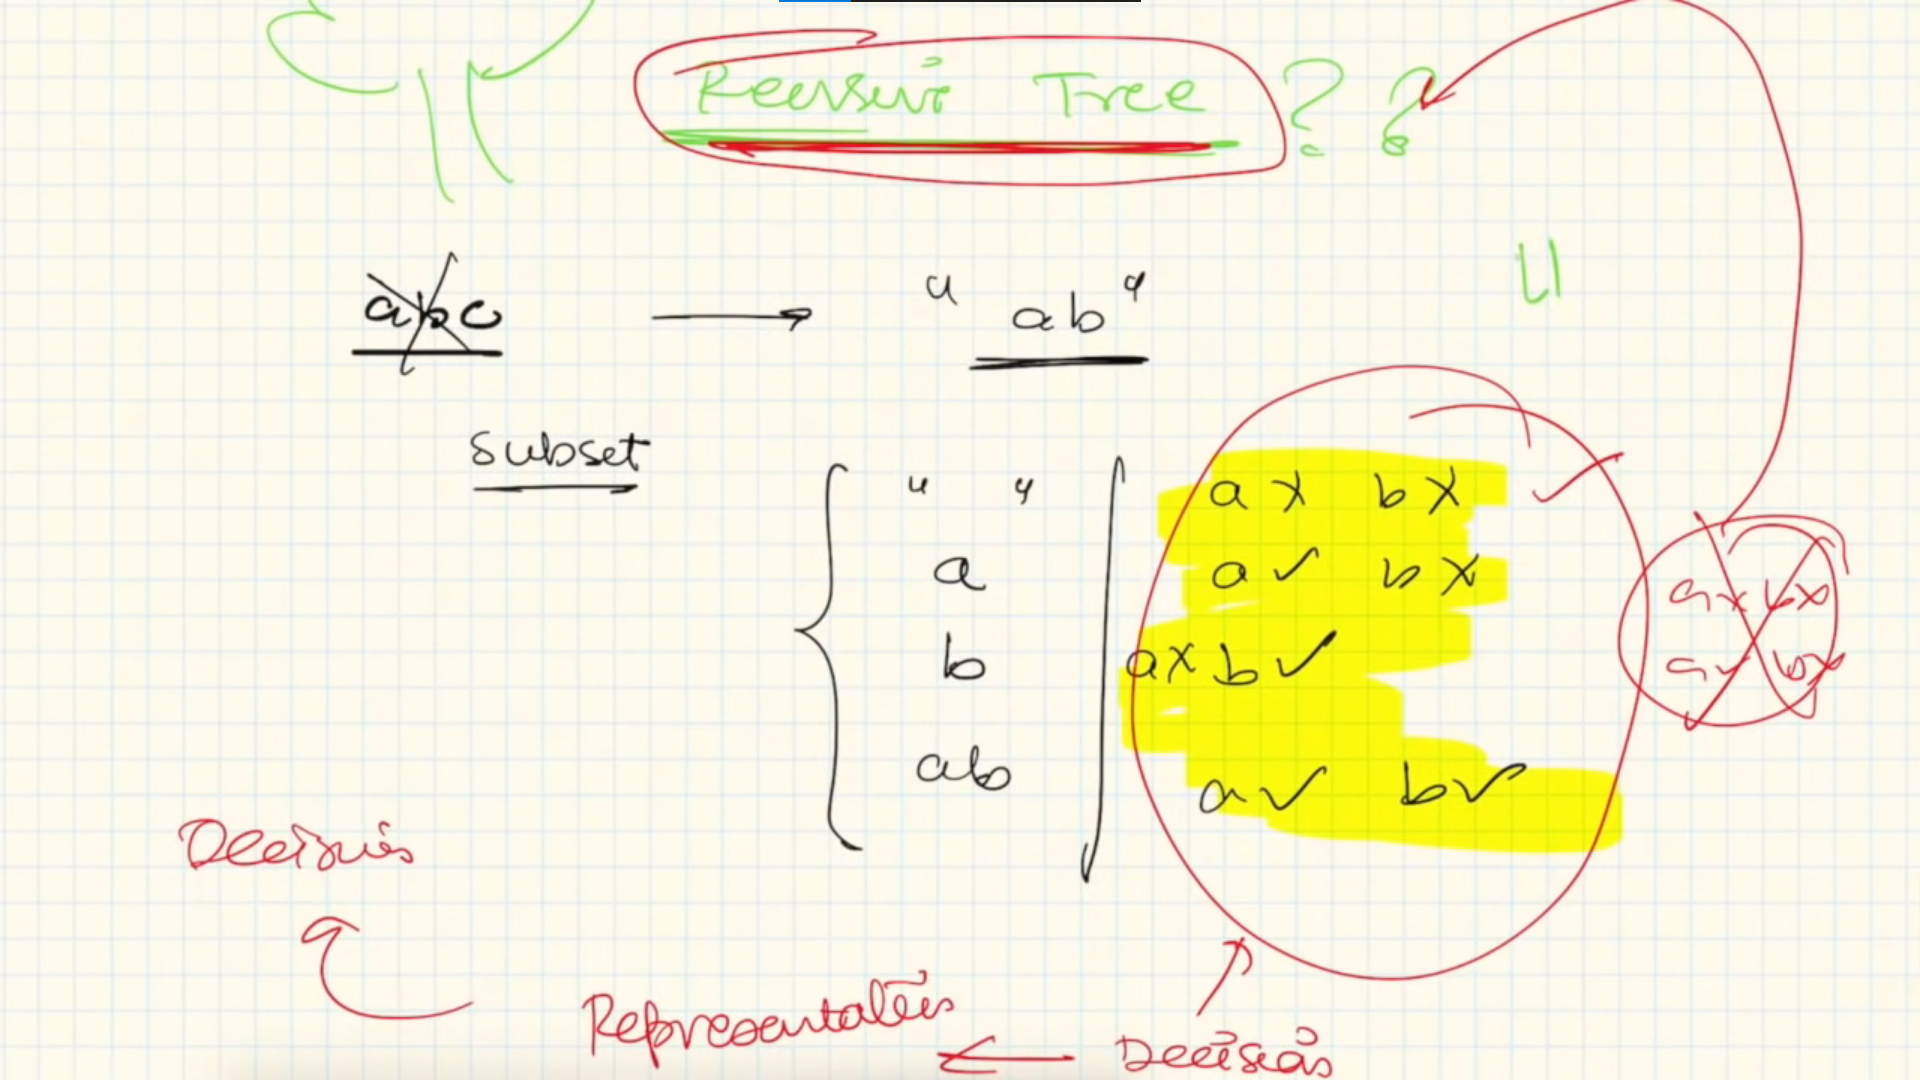 Recursive Tree ? ?
abc → "ab"
subset
" " a x b x
a a ✓ b x
b a x b ✓
ab a ✓ b ✓
a x b x
a ✓ b x
Decisions
Representations ← Decisions